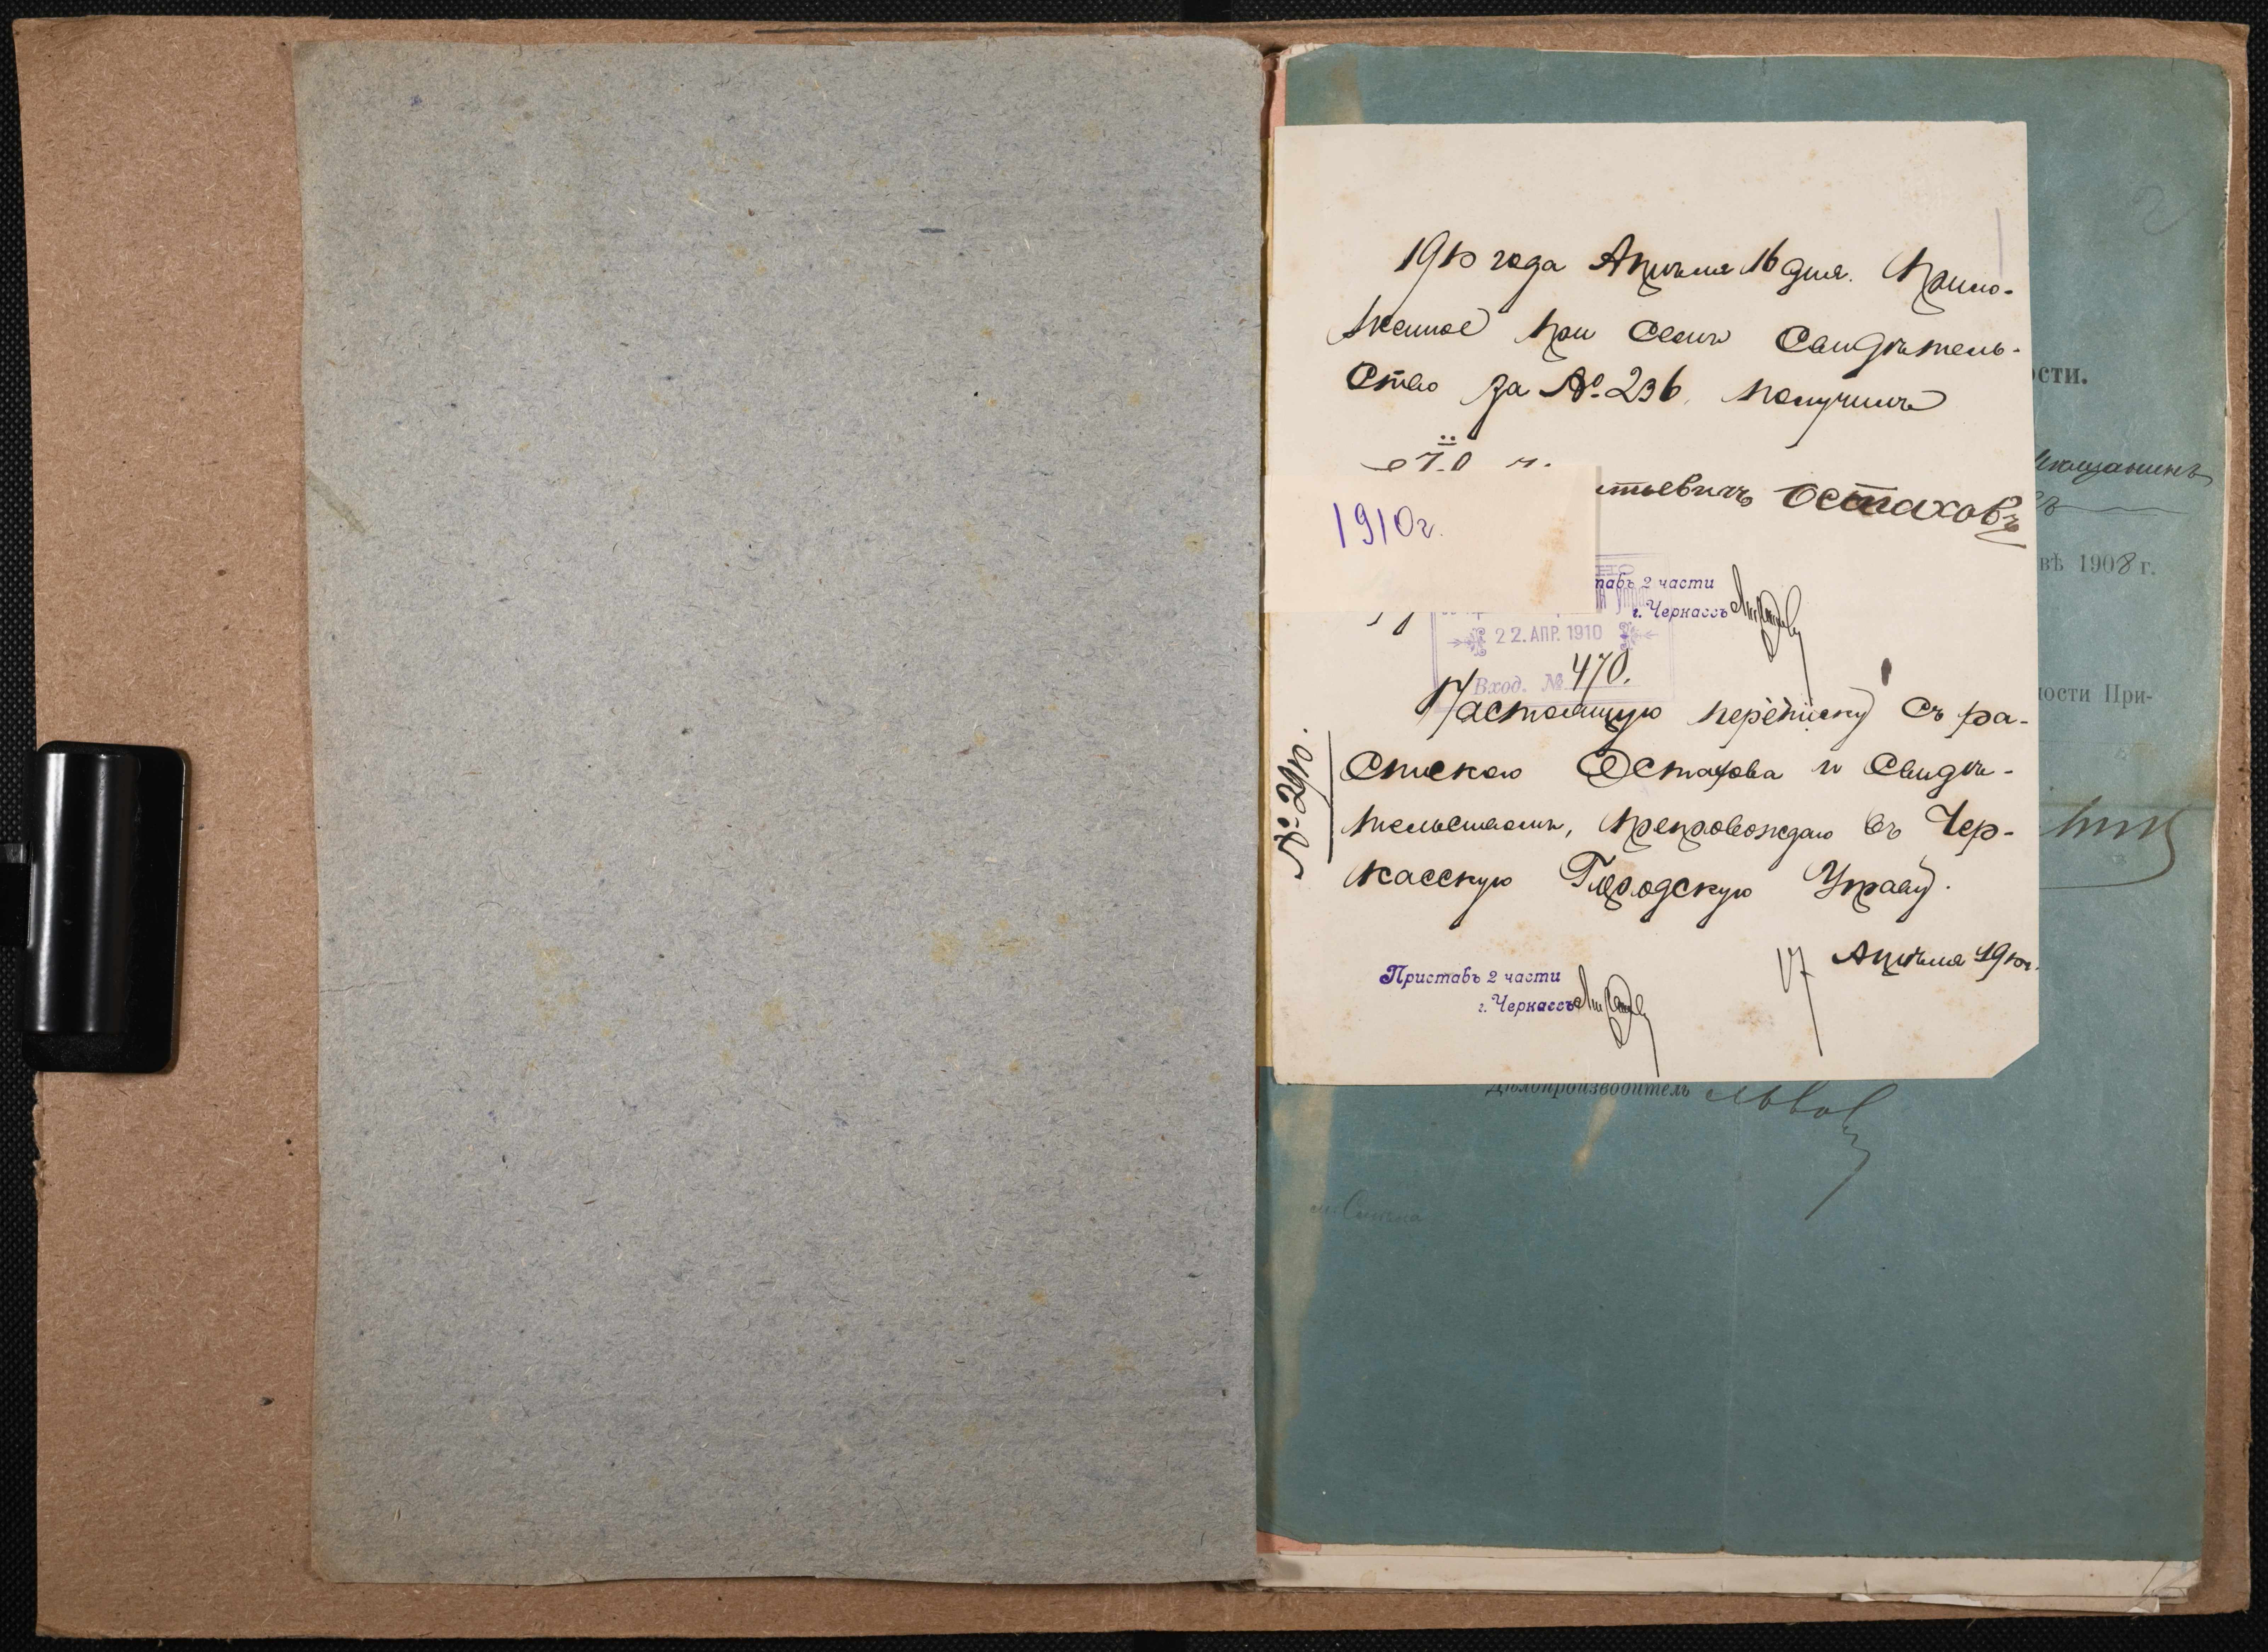 1910 года Апрѣля 16 дня. Прило-
женное при семъ Свидѣтель-
ство за № 236 получилъ
тьевичъ Остаховъ
1910 г.
ставъ 2 части
г. Черкассъ
22. АПР. 1910
Вход. № 470.
Настоящую переписку съ ра-
спискою Остахова и свидѣ-
тельствомъ, препровождаю въ Чер-
касскую Городскую Управу.
№ 2910.
17 Апрѣля 1910 г.
Приставъ 2 части
г. Черкассъ
ости.
мѣщанинъ
вѣ 1908 г.
ности При-
Дѣлопроизводитель
2